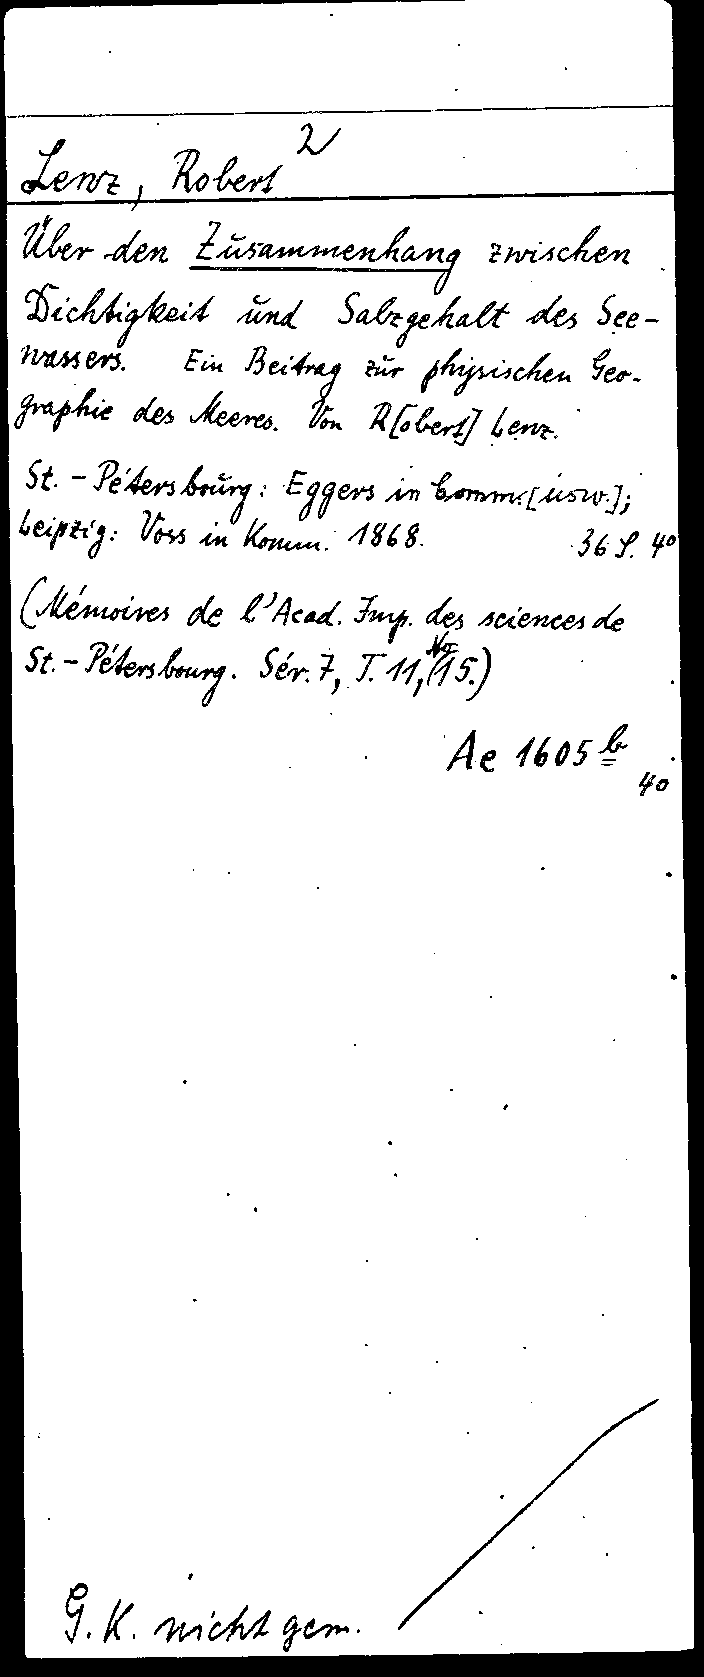 2
Lenz, Robert
Über den Zusammenhang zwischen
Dichtigkeit und Salzgehalt des See-
wassers. Ein Beitrag zur physischen Geo-
graphie des Meeres. Von R[obert] Lenz.
St.-Pétersbourg: Eggers in Comm. [usw.];
Leipzig: Voss in Komm. 1868. 36 S. 4°
(Mémoires de l'Acad. Imp. des sciences de
St.-Pétersbourg. Sér. 7, T. 11, No 15.)
Ae 1605 b
4°
G.K. nicht gem.